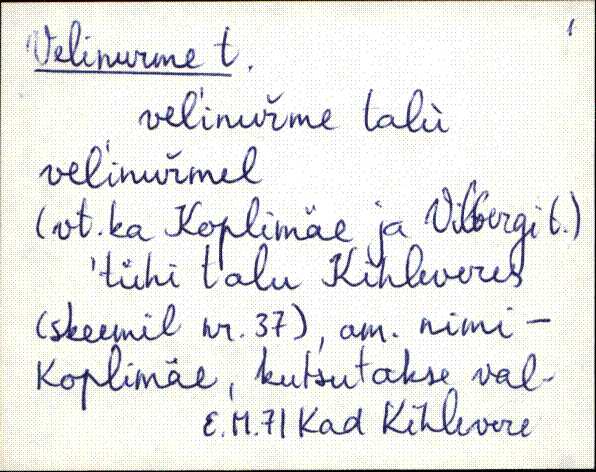 1
Velinurme t.
vel'inuřme talù
vel'inuřmel
(vt. ka Koplimäe ja Vilbergi t.)
'tühi talu Kihleveres
(skeemil nr. 37), am. nimi -
Koplimäe, kutsutakse val-
E.M.71 Kad Kihlevere